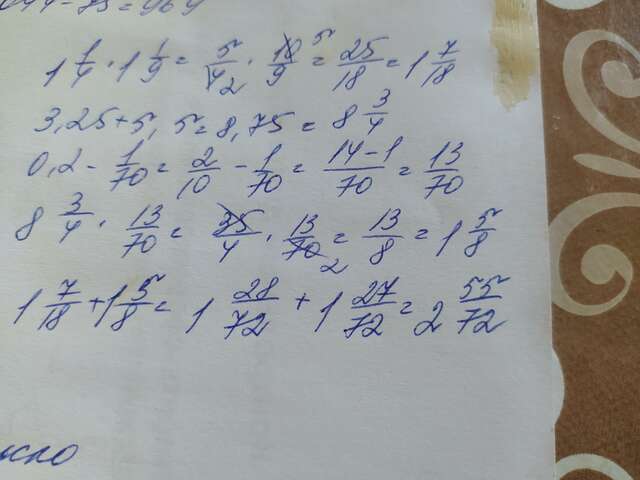 1 1/4 · 1 1/9 = 5/4 2 · 10/9 5 = 25/18 = 1 7/18
3,25 + 5,5 = 8,75 = 8 3/4
0,2 - 1/70 = 2/10 - 1/70 = 14-1/70 = 13/70
8 3/4 · 13/70 = 35/4 · 13/70 2 = 13/8 = 1 5/8
1 7/18 + 1 5/8 = 1 28/72 + 1 27/72 = 2 55/72